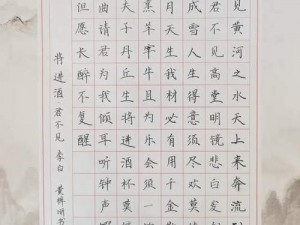 见黄河之水天上来奔流
君不见高堂明镜悲白发
成雪人生得意须尽欢莫
月天生我材必有用千金
烹羊宰牛且为乐会须一
夫子丹丘生将进酒杯莫
曲请君为我倾耳听钟
但愿长醉不复醒
将进酒 君不见 李白